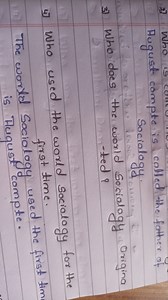 2) Who is
August compte is called the father of
Sociology
3) Who does the world Socialogy Origina
-ted?
4) Who used the world Socialogy for the
first time.
The world Sociology used the first tim
is August Compte.